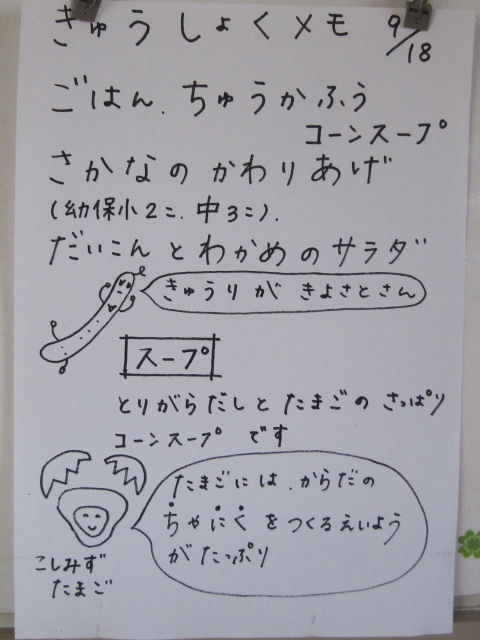 きゅうしょくメモ 9/18
ごはん、ちゅうかふう
コーンスープ
さかなのかわりあげ
(幼保小2こ、中3こ)、
だいこんとわかめのサラダ
きゅうりが きよさとさん
スープ
とりがらだしとたまごのさっぱり
コーンスープ です
たまごには、からだの
ちゃにくをつくるえいよう
がたっぷり
こしみず
たまご